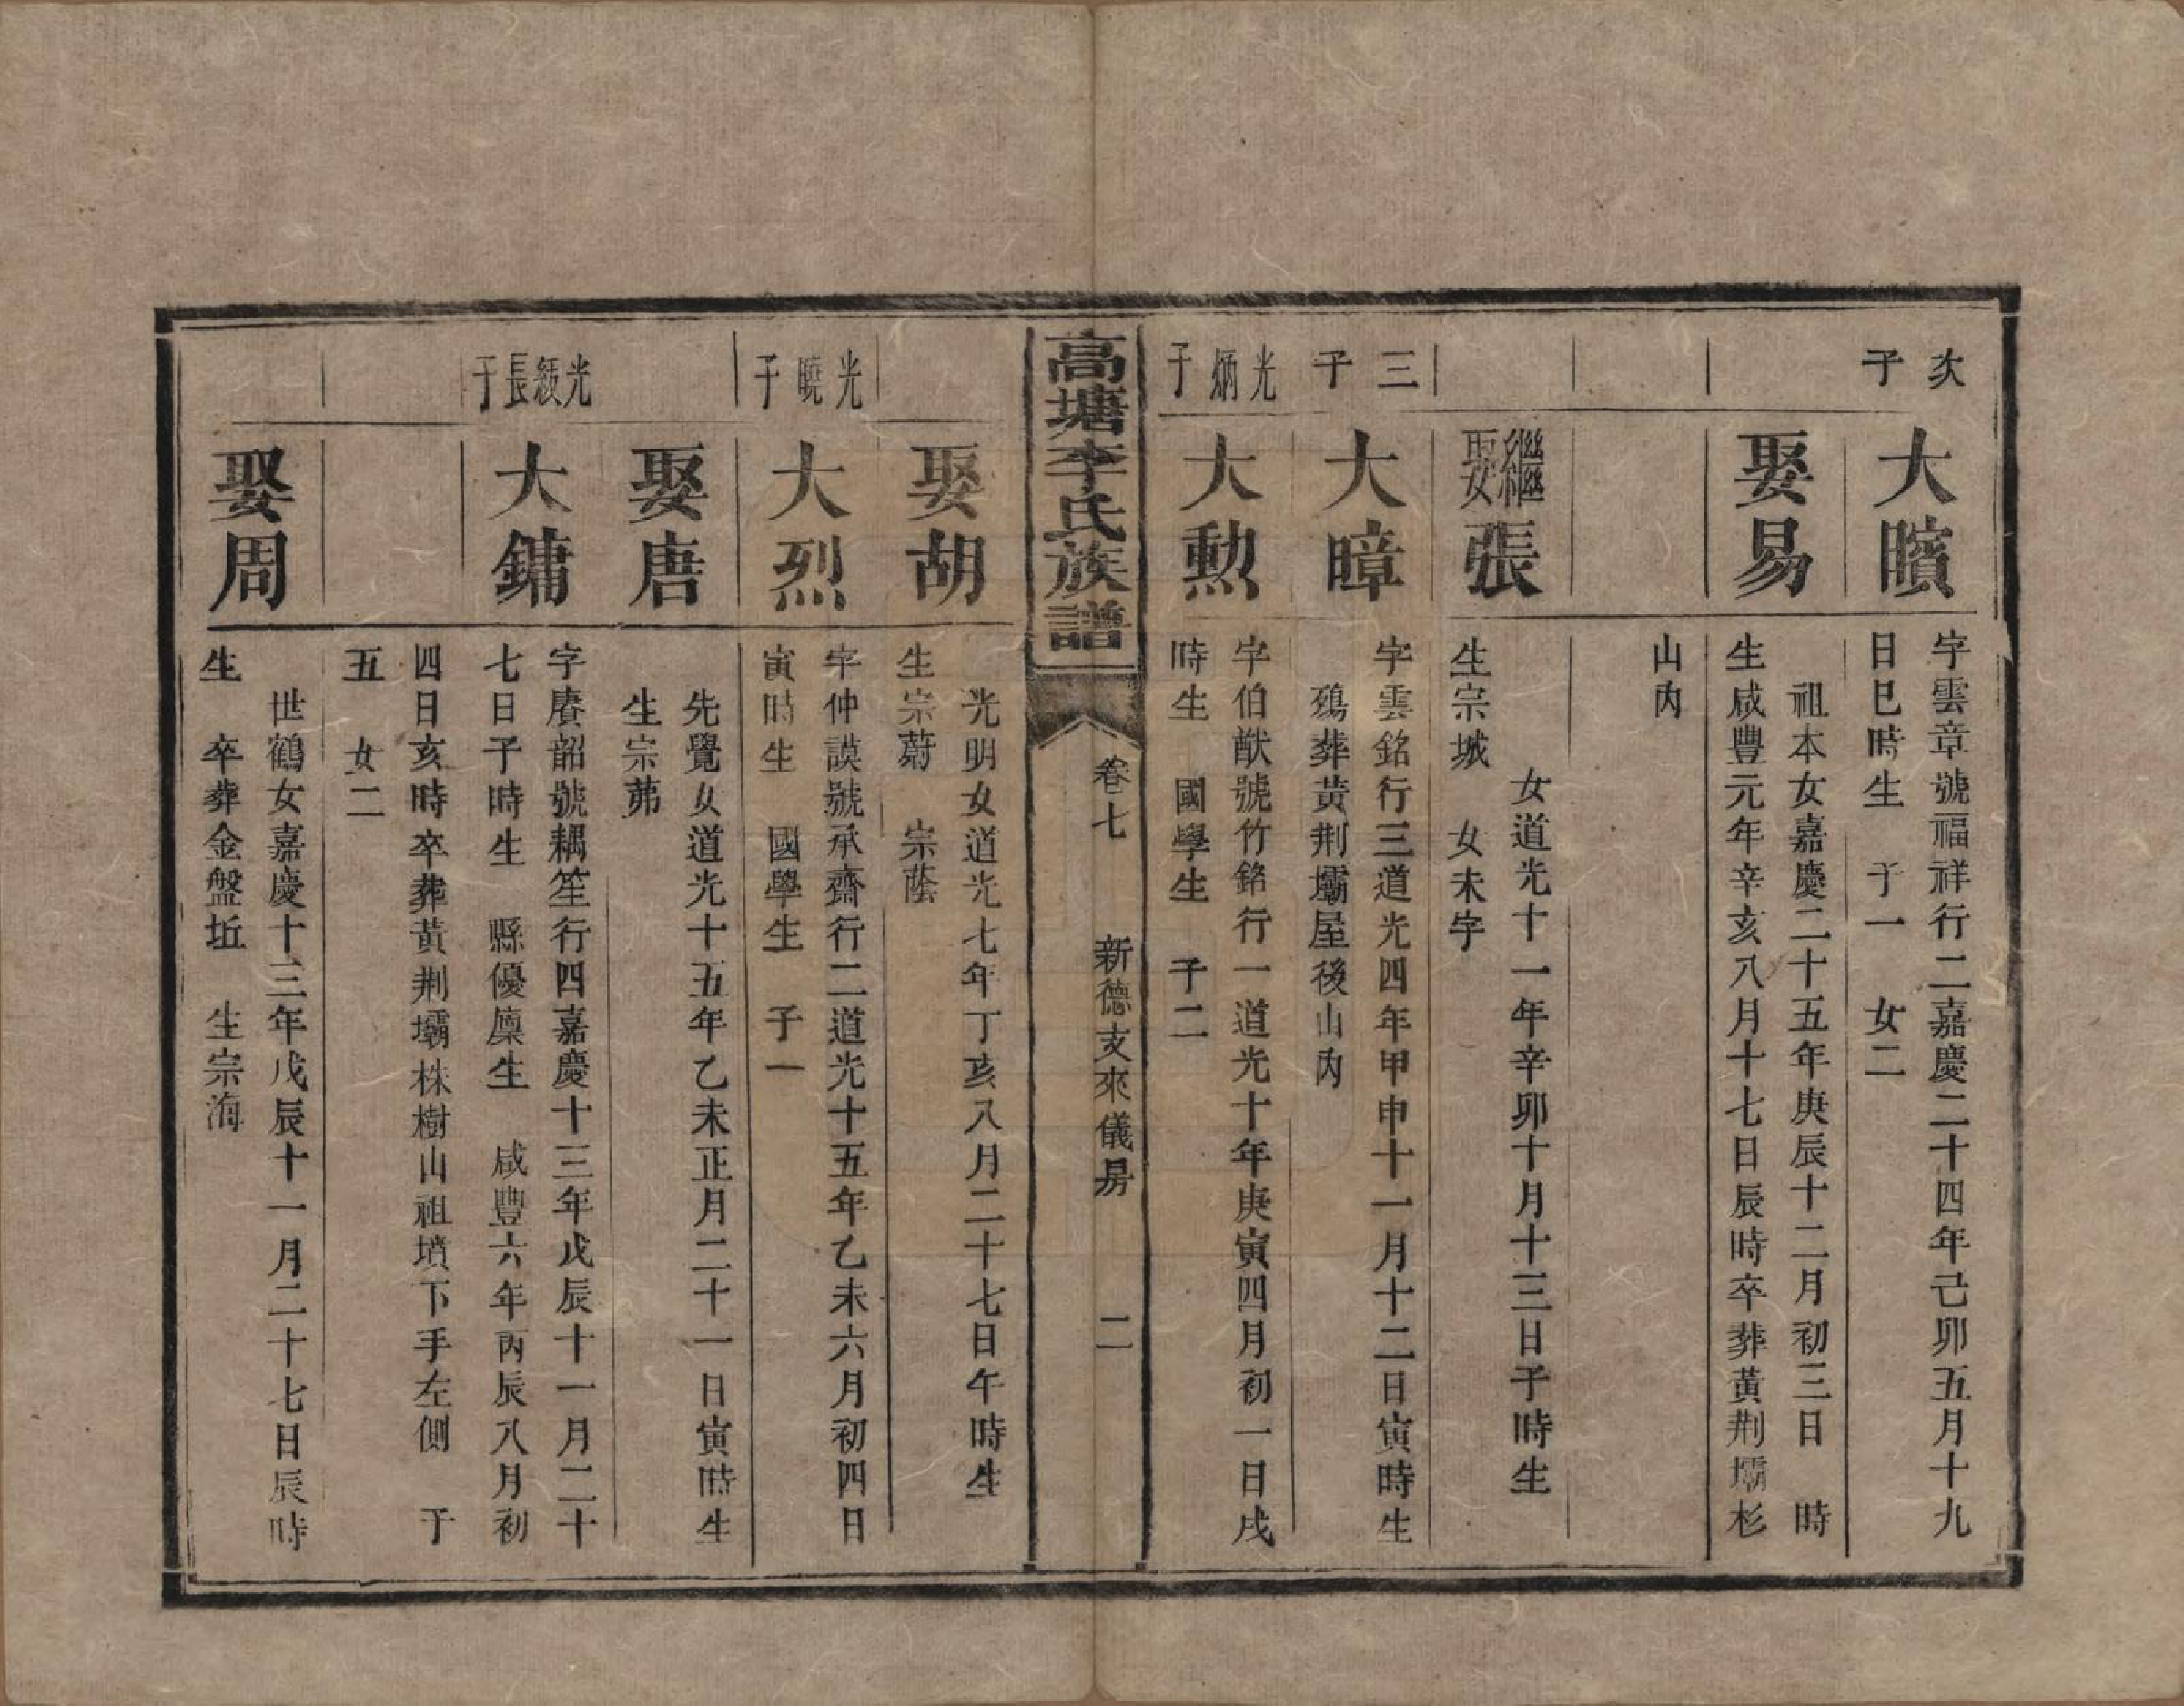 次子
大矌
字雲章號福祥行二嘉慶二十四年己卯五月十九
日巳時生　子一　女二
娶易
祖本女嘉慶二十五年庚辰十二月初三日　時
生咸豐元年辛亥八月十七日辰時卒葬黃荆壩杉
山內
繼娶張
女道光十一年辛卯十月十三日子時生
生宗城　女未字
三子
大暲
字雲銘行三道光四年甲申十一月十二日寅時生
殤葬黃荆壩屋後山內
光炳子
大勲
字伯猷號竹銘行一道光十年庚寅四月初一日戌
時生　國學生　子二
高塘李氏族譜
卷七　新德支來儀房　二
娶胡
光明女道光七年丁亥八月二十七日午時生
生宗蔚　宗蔭
光曉子
大烈
字仲謨號承齋行二道光十五年乙未六月初四日
寅時生　國學生　子一
娶唐
先覺女道光十五年乙未正月二十一日寅時生
生宗茀
光綬長子
大鏞
字賡韶號耦笙行四嘉慶十三年戊辰十一月二十
七日子時生　縣優廩生　咸豐六年丙辰八月初
四日亥時卒葬黃荆壩株樹山祖墳下手左側　子
五　女二
娶周
世鶴女嘉慶十三年戊辰十一月二十七日辰時
生　卒葬金盤坵　生宗海